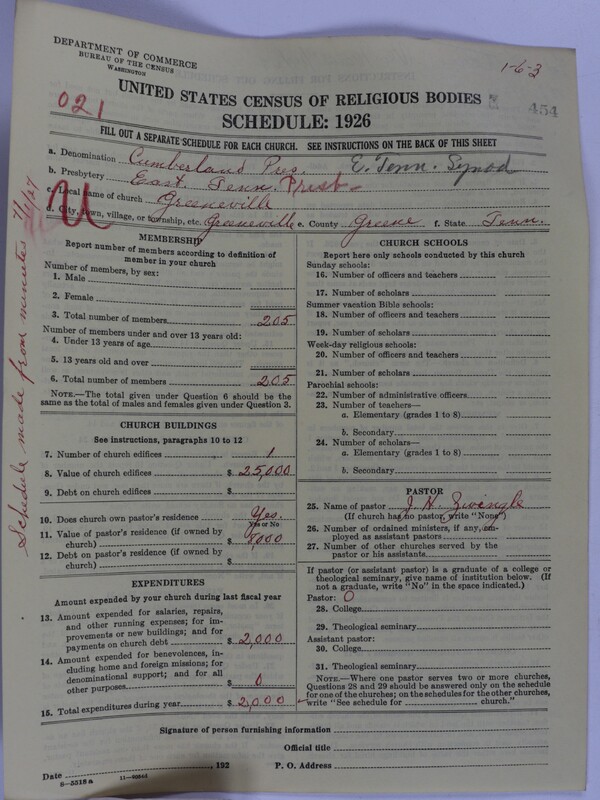 DEPARTMENT OF COMMERCE
BUREAU OF THE CENSUS
WASHINGTON
1-6-3
UNITED STATES CENSUS OF RELIGIOUS BODIES
454
021
SCHEDULE: 1926
FILL OUT A SEPARATE SCHEDULE FOR EACH CHURCH. SEE INSTRUCTIONS ON THE BACK OF THIS SHEET
a. Denomination Cumberland Pres. E. Tenn. Synod
b. Presbytery East. Tenn. Prest
c. Local name of church Greeneville
d. City, town, village, or township, etc. Greeneville e. County Greene f. State Tenn.
U
Schedule made from minutes
MEMBERSHIP
Report number of members according to definition of member in your church
Number of members, by sex:
1. Male
2. Female
3. Total number of members 205
Number of members under and over 13 years old:
4. Under 13 years of age
5. 13 years old and over
6. Total number of members 205
NOTE.—The total given under Question 6 should be
same as the total of males and females given under Question 3.
CHURCH BUILDINGS
See instructions, paragraphs 10 to 12
7. Number of church edifices 1
8. Value of church edifices $ 25,000
9. Debt on church edifices $
10. Does church own pastor's residence Yes.
Yes or No
11. Value of pastor's residence (if owned by
church) $ 8,000
12. Debt on pastor's residence (if owned by
church) $
EXPENDITURES
Amount expended by your church during last fiscal year
13. Amount expended for salaries, repairs,
and other running expenses; for im-
provements or new buildings; and for
payments on church debt $ 2,000
14. Amount expended for benevolences, in-
cluding home and foreign missions; for
denominational support; and for all
other purposes $ 0
15. Total expenditures during year $ 2,000
CHURCH SCHOOLS
Report here only schools conducted by this church
Sunday schools:
16. Number of officers and teachers
17. Number of scholars
Summer vacation Bible schools:
18. Number of officers and teachers
19. Number of scholars
Week-day religious schools:
20. Number of officers and teachers
21. Number of scholars
Parochial schools:
22. Number of administrative officers
23. Number of teachers—
a. Elementary (grades 1 to 8)
b. Secondary
24. Number of scholars—
a. Elementary (grades 1 to 8)
b. Secondary
PASTOR
25. Name of pastor J. H. Zwingle
(If church has no pastor, write "None")
26. Number of ordained ministers, if any, em-
ployed as assistant pastors
27. Number of other churches served by the
pastor or his assistants
If pastor (or assistant pastor) is a graduate of a college or
theological seminary, give name of institution below. (If
not a graduate, write "No" in the space indicated.)
Pastor: O
28. College
29. Theological seminary
Assistant pastor:
30. College
31. Theological seminary
NOTE.—Where one pastor serves two or more churches,
Questions 28 and 29 should be answered only on the schedule
for one of the churches; on the schedules for the other churches,
write "See schedule for church."
Signature of person furnishing information
Official title
Date , 192 P. O. Address
8-5518a